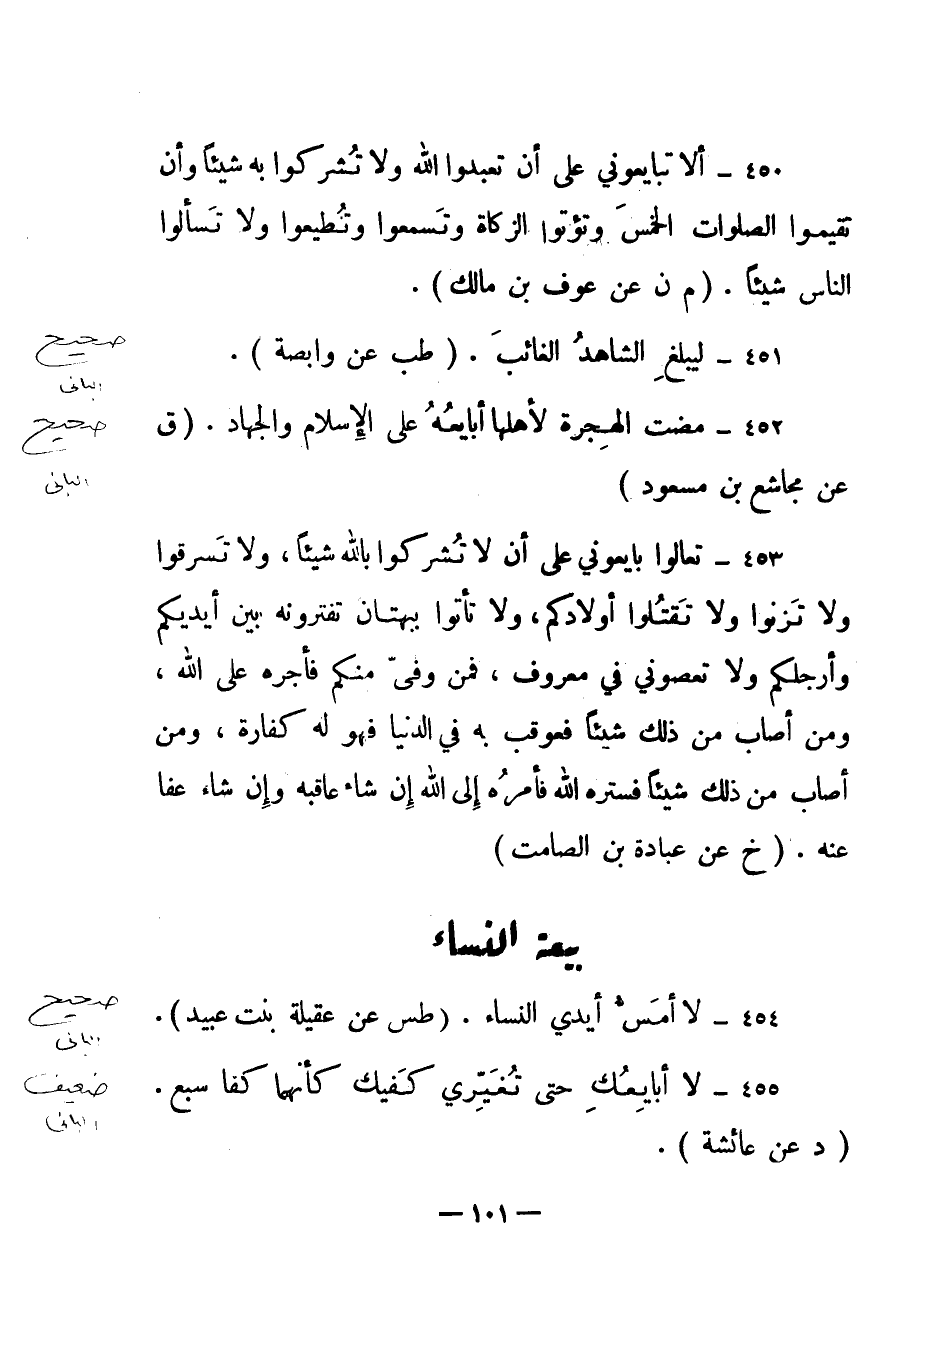 ٤٥٠ ـ ألا تبايعوني على أن تعبدوا الله ولا تُشركوا به شيئاً وأن
تقيموا الصلوات الخمسَ وتؤتوا الزكاة وتَسمعوا وتُطيعوا ولا تَسألوا
الناس شيئاً . ( م ن عن عوف بن مالك ) .
٤٥١ ـ ليبلغِ الشاهدُ الغائبَ . ( طب عن وابصة ) .
صحيح
البانى
٤٥٢ ـ مضت الهِجرة لأهلها أبايعُهُ على الإسلام والجهاد . ( ق
صحيح
عن مجاشع بن مسعود )
البانى
٤٥٣ ـ تعالوا بايعوني على أن لا تُشركوا بالله شيئاً ، ولا تَسرقوا
ولا تَزنوا ولا تَقتُلوا أولادكم ، ولا تأتوا ببهتان تفترونه بين أيديكم
وأرجلكم ولا تعصوني في معروف ، فمن وفىّ منكم فأجره على الله ،
ومن أصاب من ذلك شيئاً فعوقب به في الدنيا فهو له كفارة ، ومن
أصاب من ذلك شيئاً فستره الله فأمرُه إلى الله إن شاء عاقبه وإن شاء عفا
عنه . ( خ عن عبادة بن الصامت )
بيعة النساء
٤٥٤ ـ لا أمَسُّ أيدي النساء . ( طس عن عقيلة بنت عبيد ) .
صحيح
البانى
٤٥٥ ـ لا أبايِعُكِ حتى تُغَيِّرِي كَفيك كأنهما كفا سبع .
ضعيف
البانى
( د عن عائشة ) .
— ١٠١ —